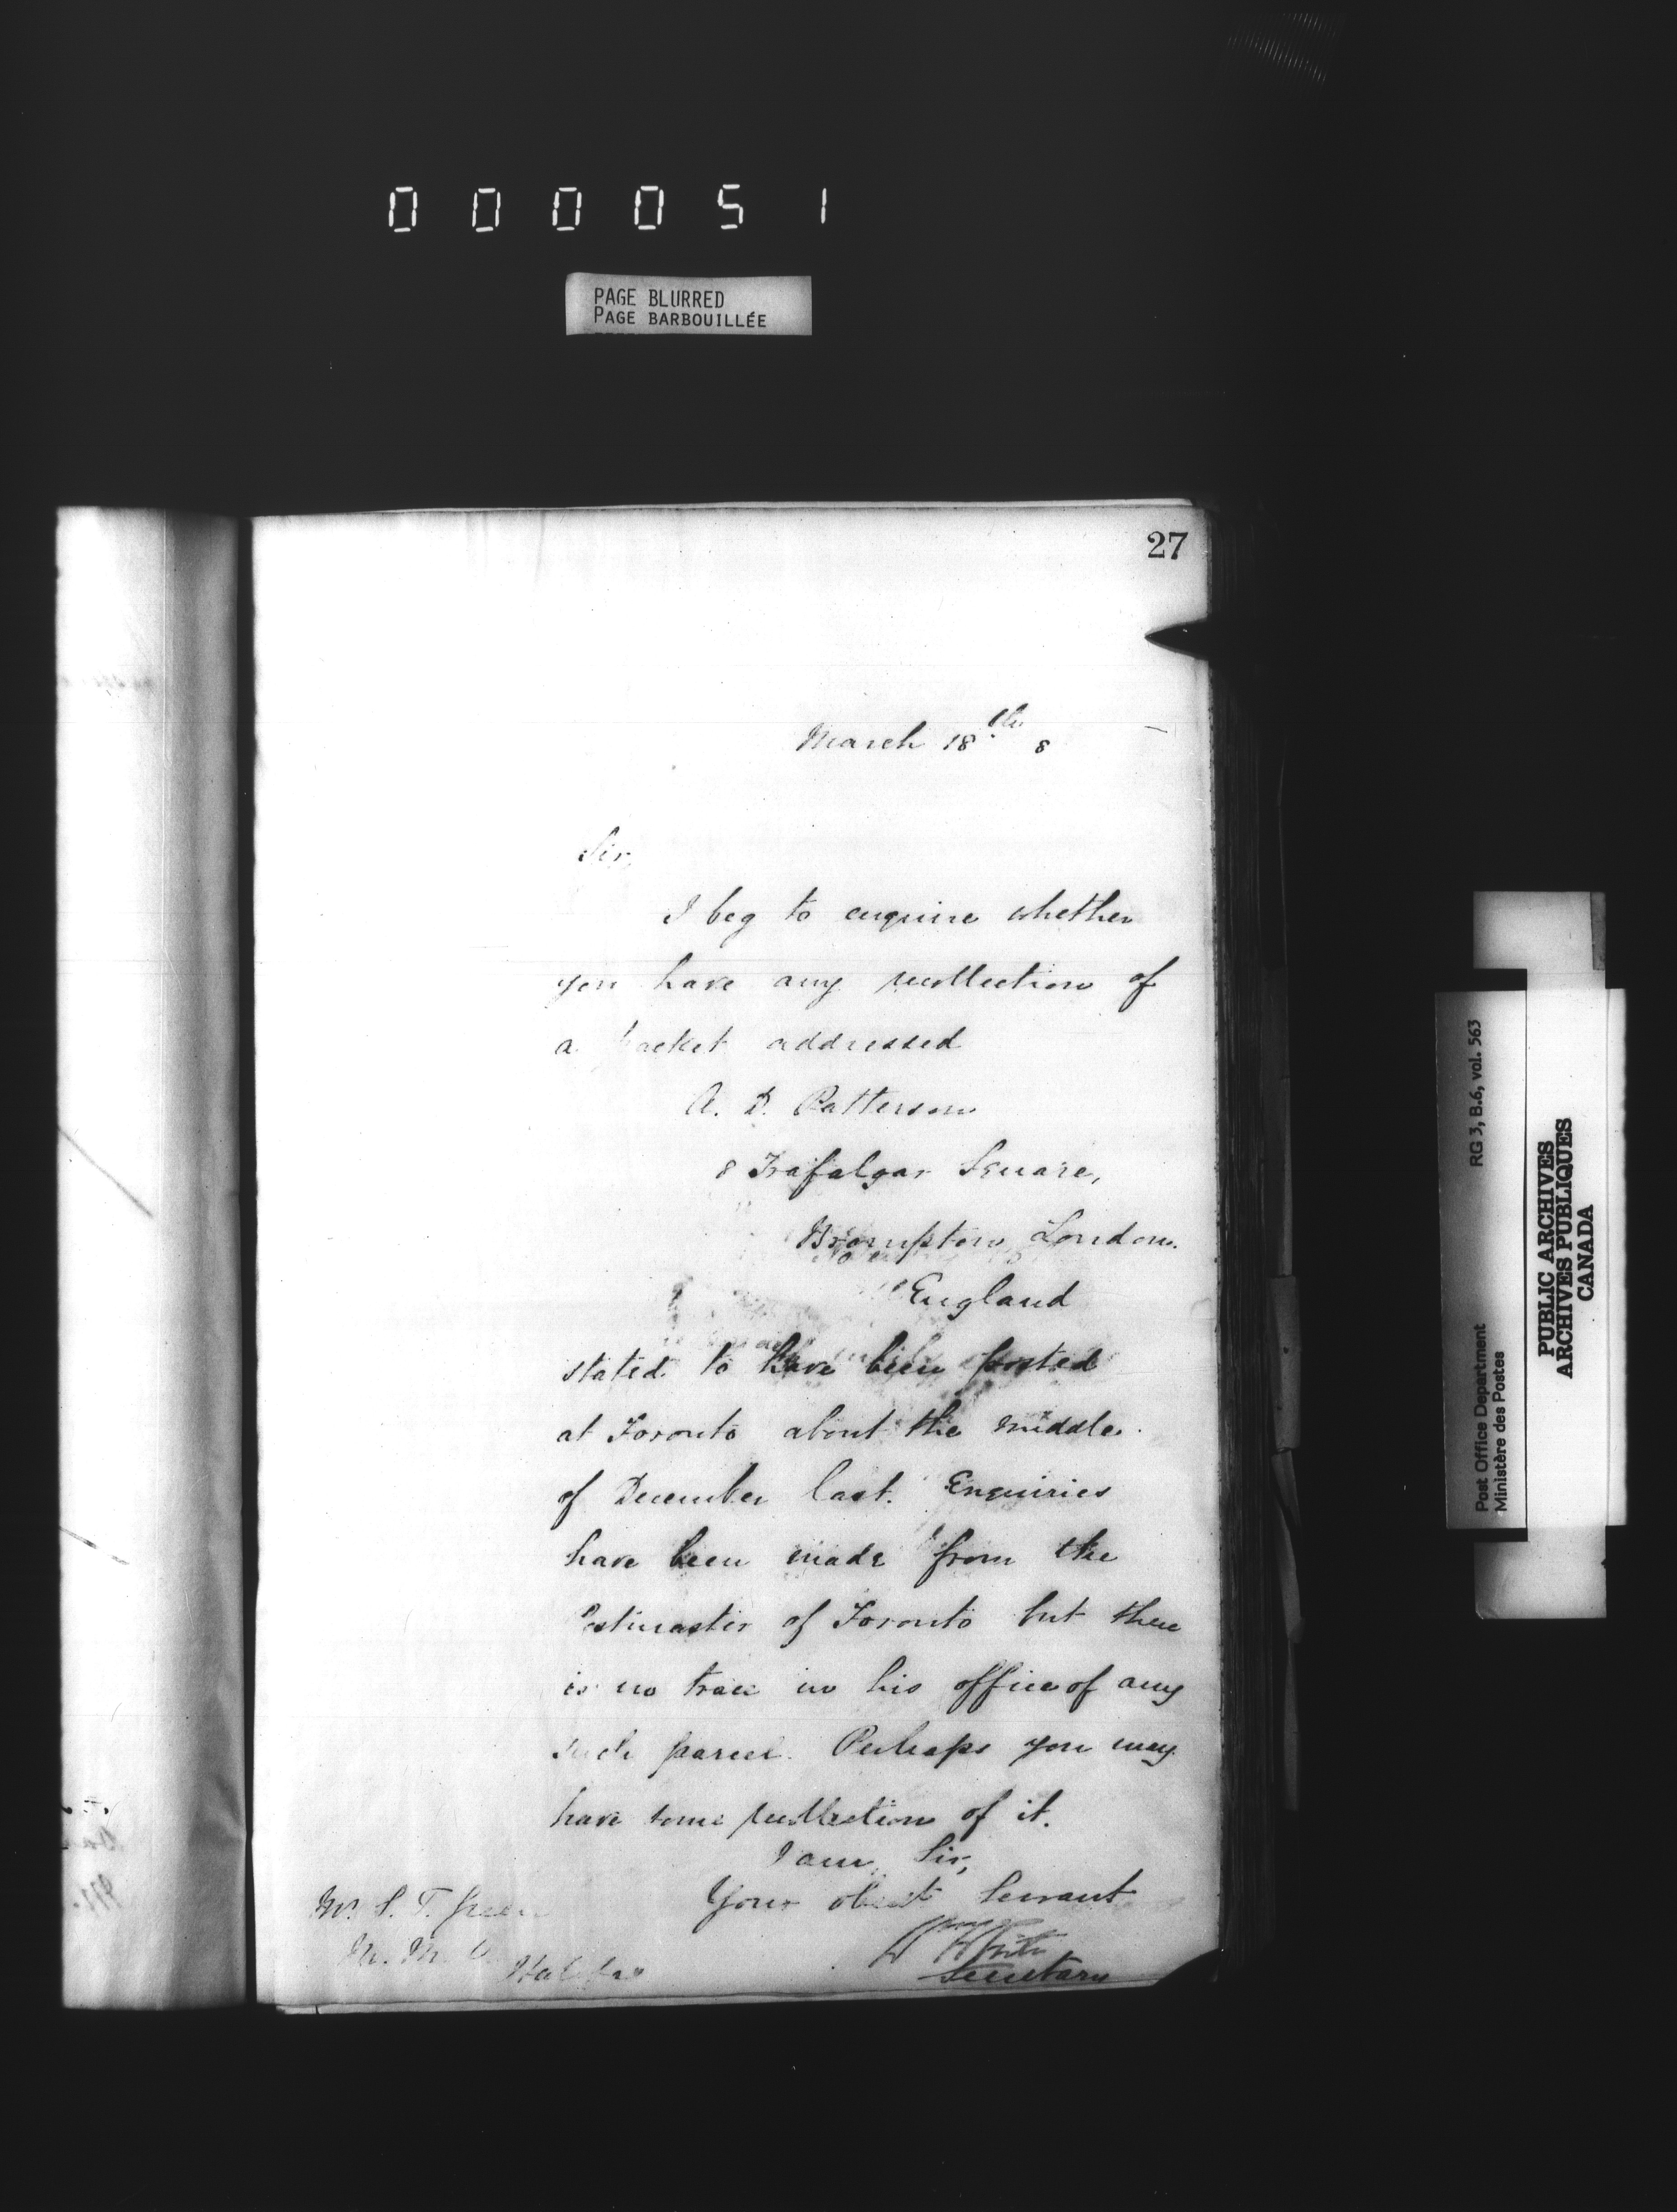 000051
PAGE BLURRED
PAGE BARBOUILLÉE
27
March 18th 8
Sir,
I beg to enquire whether
you have any recollection of
a packet addressed
A. D. Patterson
8 Trafalgar Square,
Brompton, London.
England
stated to have been posted
at Toronto about the middle
of December last. Enquiries
have been made from the
Postmaster of Toronto but there
is no trace in his office of any
such parcel. Perhaps you may
have some recollection of it.
I am, Sir,
Your obedt Servant
Wm White
Secretary
Mr. S. T. Green
M. M. C.
Halifax
Post Office Department
Ministère des Postes
RG 3, B.6, vol. 563
PUBLIC ARCHIVES
ARCHIVES PUBLIQUES
CANADA